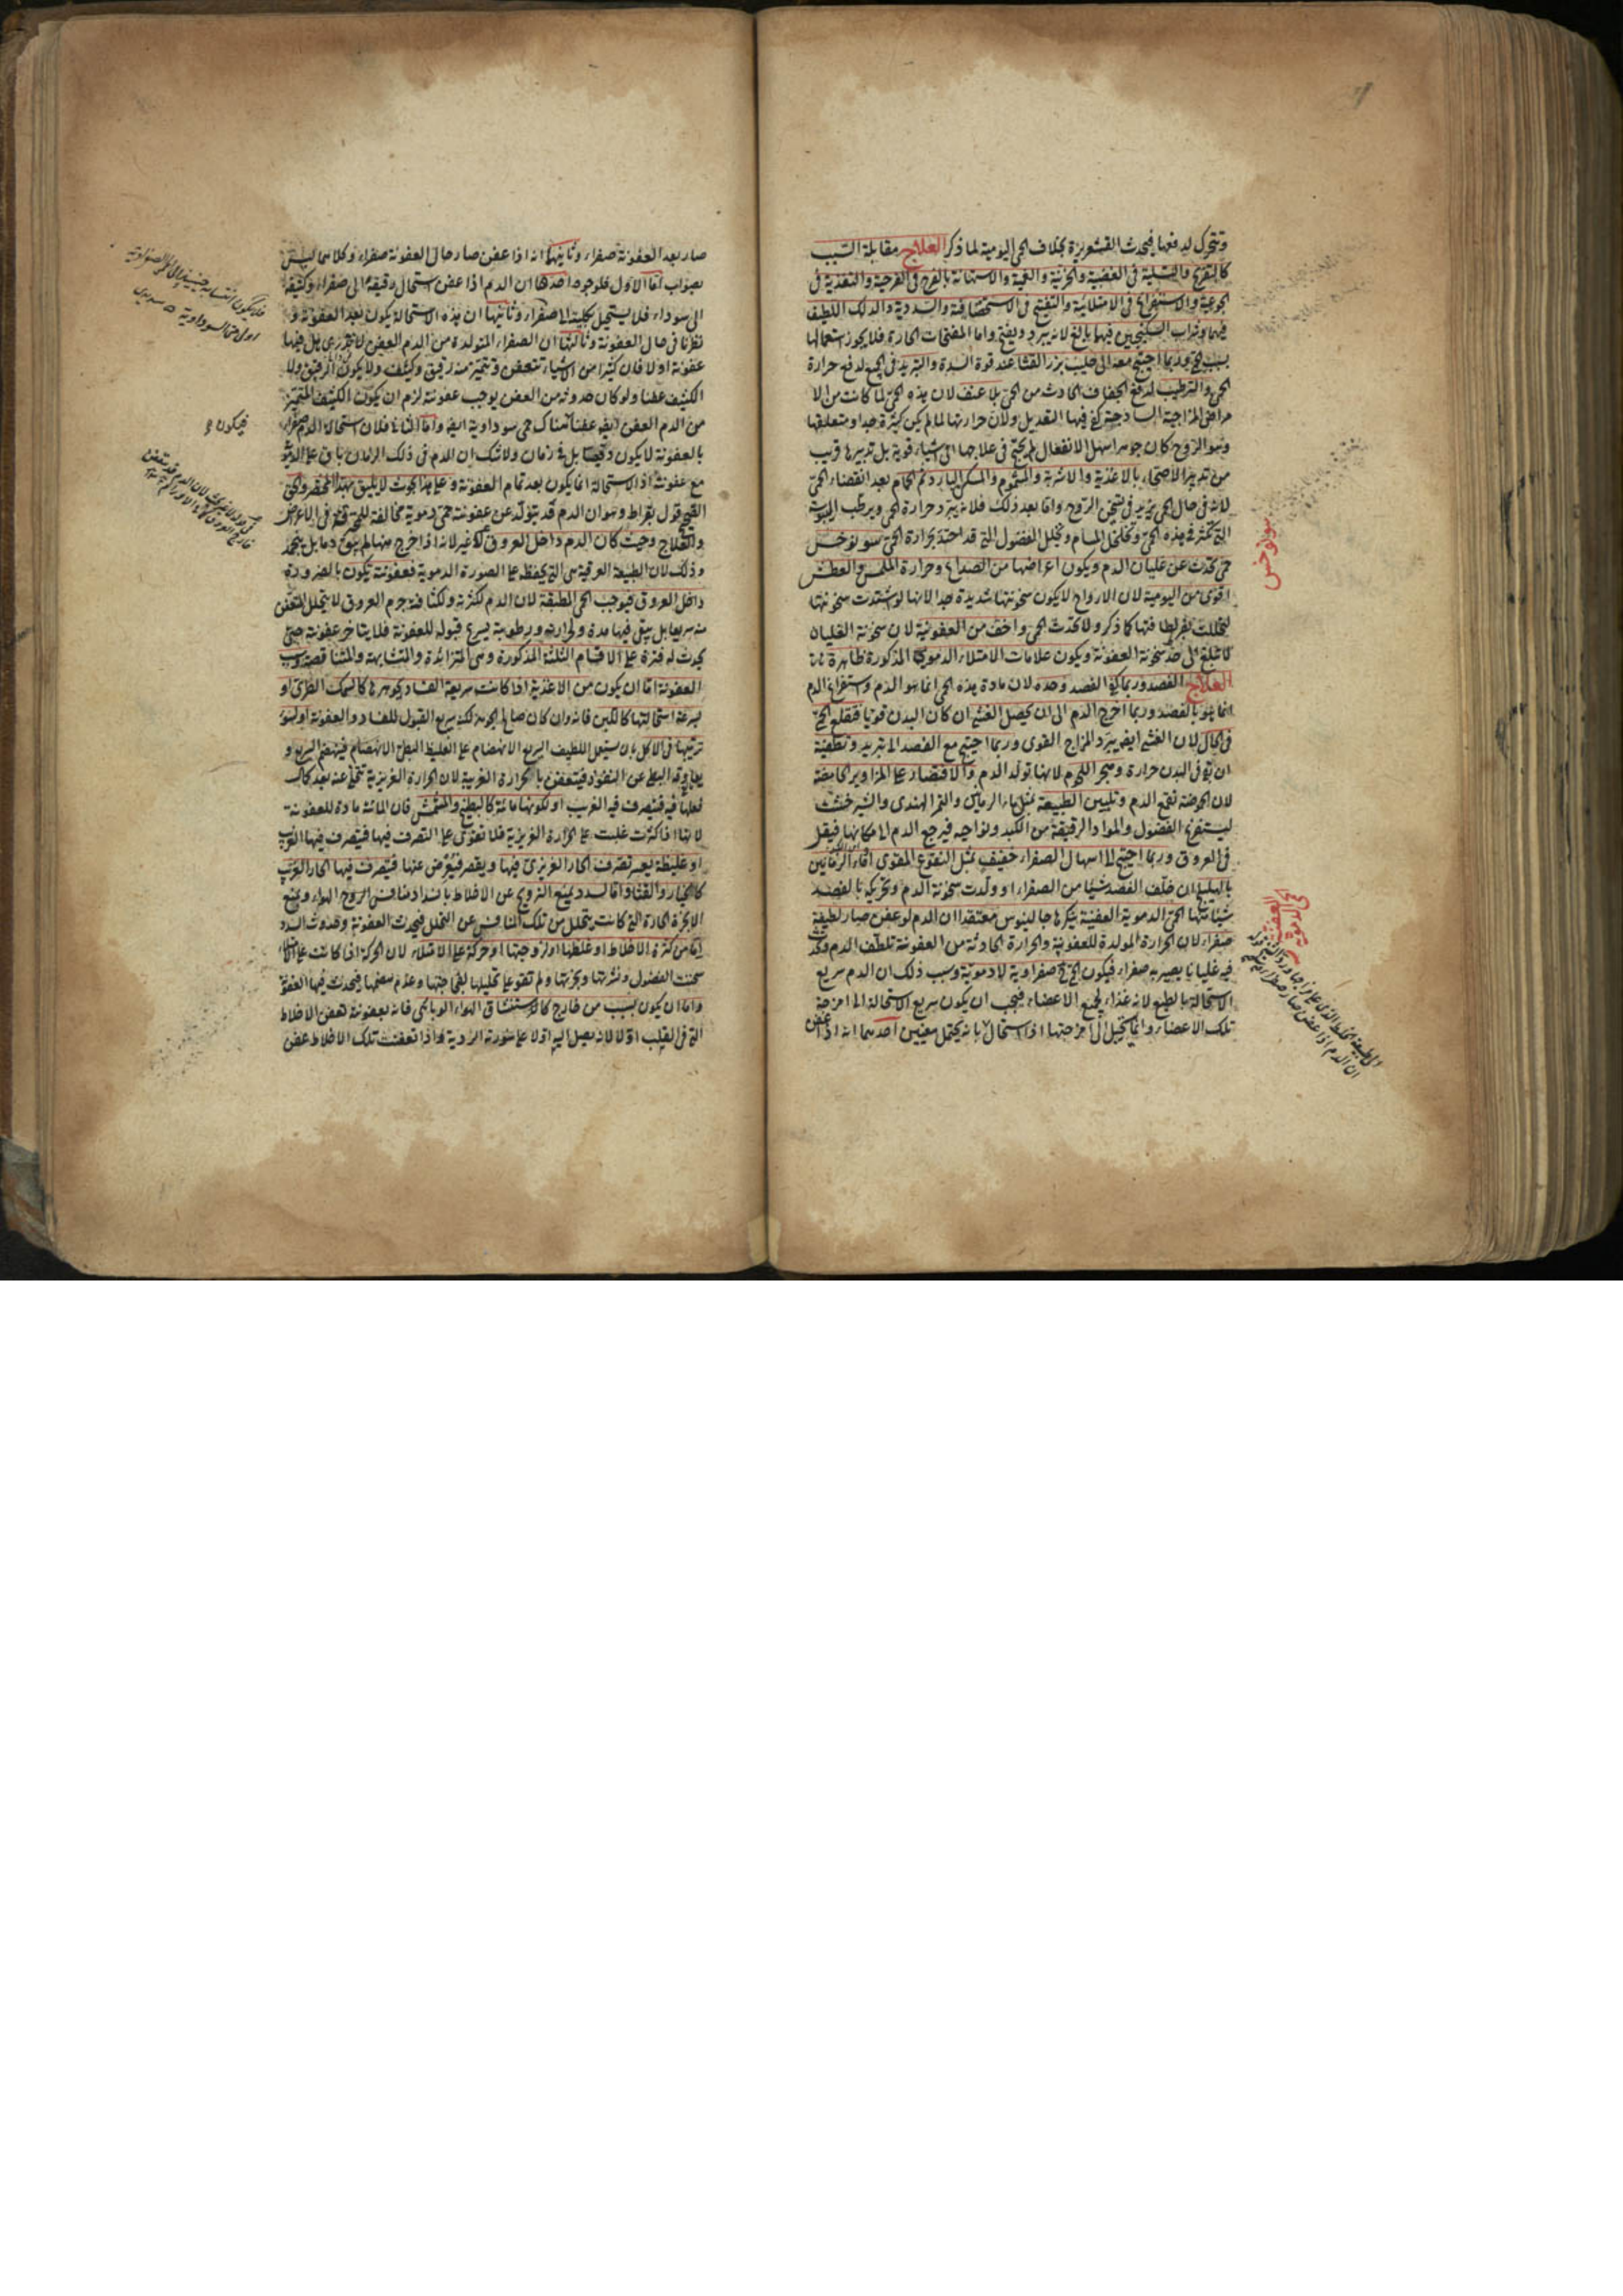 وتتحرك لدفعها فيحدث القشعريرة بخلاف الحمى اليومية لما ذكر العلاج مقابلة السبب
كالتفريح والتسلية فى الغضبية والحزنية والغمية والاستهانة بالفرح فى الفرحية والتغذية فى
الجوعية والاستفراغ فى الامتلائية والتفتيح فى الاستحصافية والسددية والدلك اللطيف
فيهما وشراب السكنجبين فيهما بالغ لانه يبرد ويفتح واما المفتحات الحارة فلا يجوز استعمالها
بسبب الحمى وربما احتيج معه الى حليب بزر القثا عند قوة السدة والتبريد فى الجميع لدفع حرارة
الحمى والترطيب لدفع الجفاف الحادث من الحمى بلا عنف لان هذه الحمى لما كانت من الا
مراض المزاجية الساذجة كفى فيها التعديل ولان حرارتها لما لم يكن كثيرة جدا ومتعلقها
وهو الروح كان جوهرا سهل الانفعال لم يحتج فى علاجها الى اشياء قوية بل تدبيرها قريب
من تدبير الاصحاء بالاغذية والاشربة والمشموم والمسكن البارد ثم الحمام بعد انقضاء الحمى
لانه فى حال الحمى يزيد فى تسخن الروح واما بعد ذلك فلانه يبرد حرارة الحمى ويرطب اليبوسة
التى تكثر فى هذه الحمى وتخلخل المسام وتحلل الفضول التى قد احتد بحرارة الحمى سونوخس
حمى تحدث عن غليان الدم ويكون اعراضها من الصداع وحرارة الملمس والعطش
اقوى من اليومية لان الارواح لا يكون سخونتها شديدة جدا لانها لو اشتدت سخونتها
لتحللت لفرط لطافتها كما ذكر ولا تحدث الحمى واخف من العفونية لان سخونة الغليان
لا تبلغ الى حد سخونة العفونة ويكون علامات الامتلاء الدموى المذكورة ظاهرة
العلاج الفصد وربما كفى الفصد وحده لان مادة هذه الحمى انما هو الدم واستفراغ الدم
انما هو بالفصد وربما اخرج الدم الى ان يحصل الغشى ان كان البدن قويا فتقلع الحمى
فى الحال لان الغشى ايضا يبرد المزاج القوى وربما احتيج مع الفصد الى تبريد وتطفية
ان بقى فى البدن حرارة وهجر اللحوم لانها تولد الدم والاقتصار على المزاوير الحامضة
لان الحموضة تقمع الدم وتليين الطبيعة بمثل ماء الرمانين والتمر الهندى والشيرخشت
ليستفرغ الفضول والمواد الرقيقة من الكبد ونواحيه فيرجع الدم الى مكانها فيقل
فى العروق وربما احتيج الى اسهال الصفراء خفيف بمثل النقوع المقوى او ماء الرمانين
بالهليلج ان خلف الفصد شيئا من الصفراء او ولدت سخونة الدم وتحريكه بالفصد
شيئا منها الحمى الدموية العفنية ينكرها جالينوس معتقدا ان الدم لو عفن صار لطيفه
صفراء لان الحرارة المولدة للعفونية والحرارة الحادثة من العفونة تلطف الدم وتحدث
فيه غليانا يصير به صفراء فيكون الحمى ح صفراوية لا دموية وسبب ذلك ان الدم سريع
الاستحالة بالطبع لانه غذاء لجميع الاعضاء فيجب ان يكون سريع الاستحالة الى امزجة
تلك الاعضاء وانما تحيل الى امزجتها اذا استحال بانه يحتمل معنيين احدهما انه اذا عفن
سونوخس
الحمى الدموية
العفنية
ان الدم اذا عفن صار صفراء
صار بعد العفونة صفراء وثانيهما انه اذا عفن صار حال العفونة صفراء وكلاهما ليس
بصواب اما الاول فلوجوه احدها ان الدم اذا عفن استحال رقيقه الى صفراء وكثيفه
الى سوداء فلا يستحيل بكليته الى صفراء وثانيها ان هذه الاستحالة يكون بعد العفونة و
نظرنا فى حال العفونة وثالثها ان الصفراء المتولدة من الدم العفن لا تدرى هل فيها
عفونة او لا فان كثيرا من الاشياء تتعفن وتتميز منه رقيق وكثيف ولا يكون الرقيق ولا
الكثيف عفنا ولو كان حدوثه من العفن يوجب عفونته لزم ان يكون الكثيف المتميز
من الدم العفن ايضا عفنا هناك حمى سوداوية ايضا واما الثانى فلان استحالة الدم صفراء
بالعفونة لا يكون دفعة بل فى زمان ولا شك ان الدم فى ذلك الزمان باق على الدموية
مع عفونته اذ الاستحالة انما يكون بعد تمام العفونة وعلى هذا بحوث لا يليق بهذا المختصر والحق
الصحيح قول بقراط وهو ان الدم قد يتولد عن عفونته حمى دموية مخالفة للمحرقة فى الاعراض
والعلاج وحيث كان الدم داخل العروق لا غير لانه اذا خرج منها لم يبق دما بل يتجمد
وذلك لان الطبيعة العرقية هى التى يحفظه على الصورة الدموية فعفونته يكون بالضرورة
داخل العروق فيوجب الحمى المطبقة لان الدم لكثرته ولكثافة جرم العروق لا يتحلل المتعفن
منه سريعا بل يبقى فيها مدة ولحرارته ورطوبته يسرع قبوله للعفونة فلا يتاخر عفونته حتى
يحدث له فترة على الاقسام الثلثة المذكورة وهى المتزائدة والمتشابهة والمتناقصة وسبب
العفونة اما ان يكون من الاغذية اذا كانت سريعة الفساد بجوهرها كالسمك الطرى او
لسرعة استحالتها كاللبن فانه وان كان صالح الجوهر لكنه سريع القبول للفساد والعفونة او لسوء
ترتيبها فى الاكل بان يستعمل اللطيف السريع الانهضام على الغليظ البطئ الانهضام فينهضم السريع و
يعاوقه البطئ عن النفوذ فيتعفن بالحرارة الغريبة لان الحرارة الغريزية تتخلى عنه بعد كمال
فعلها فيه فيتصرف فيه الغريب او لكونها مائية كالبطيخ والمشمش فان المائية مادة للعفونة
لانها اذا كثرت غلبت على الحرارة الغريزية فلا تقوى على التصرف فيها فيتصرف فيها الغريب
او غليظة يعسر تصرف الحار الغريزى فيها ويقصر فيعرض عنها فيتصرف فيها الحار الغريب
كالخيار والقثا واما لسدد يمنع الترويح عن الاخلاط بانسداد منافس الروح الهواء ويمنع
الابخرة الحارة التى كانت يتحلل من تلك المنافس عن التحلل فيحدث العفونة وحدوث السدد
اما من كثرة الاخلاط او غلظها او لزوجتها او حركة على الامتلاء لان الحركة اذا كانت على الامتلاء
سخنت الفضول ونشرتها وبخرتها ولم تقو على تحليلها لفجاجتها وعدم نضجها فيحدث فيها العفونة
واما ان يكون بسبب من خارج كاستنشاق الهواء الوبائى فانه بعفونته تعفن الاخلاط
التى فى القلب اولا لانه يصل اليه اولا على سورته الردية واذا تعفنت تلك الاخلاط عفن
فيكون